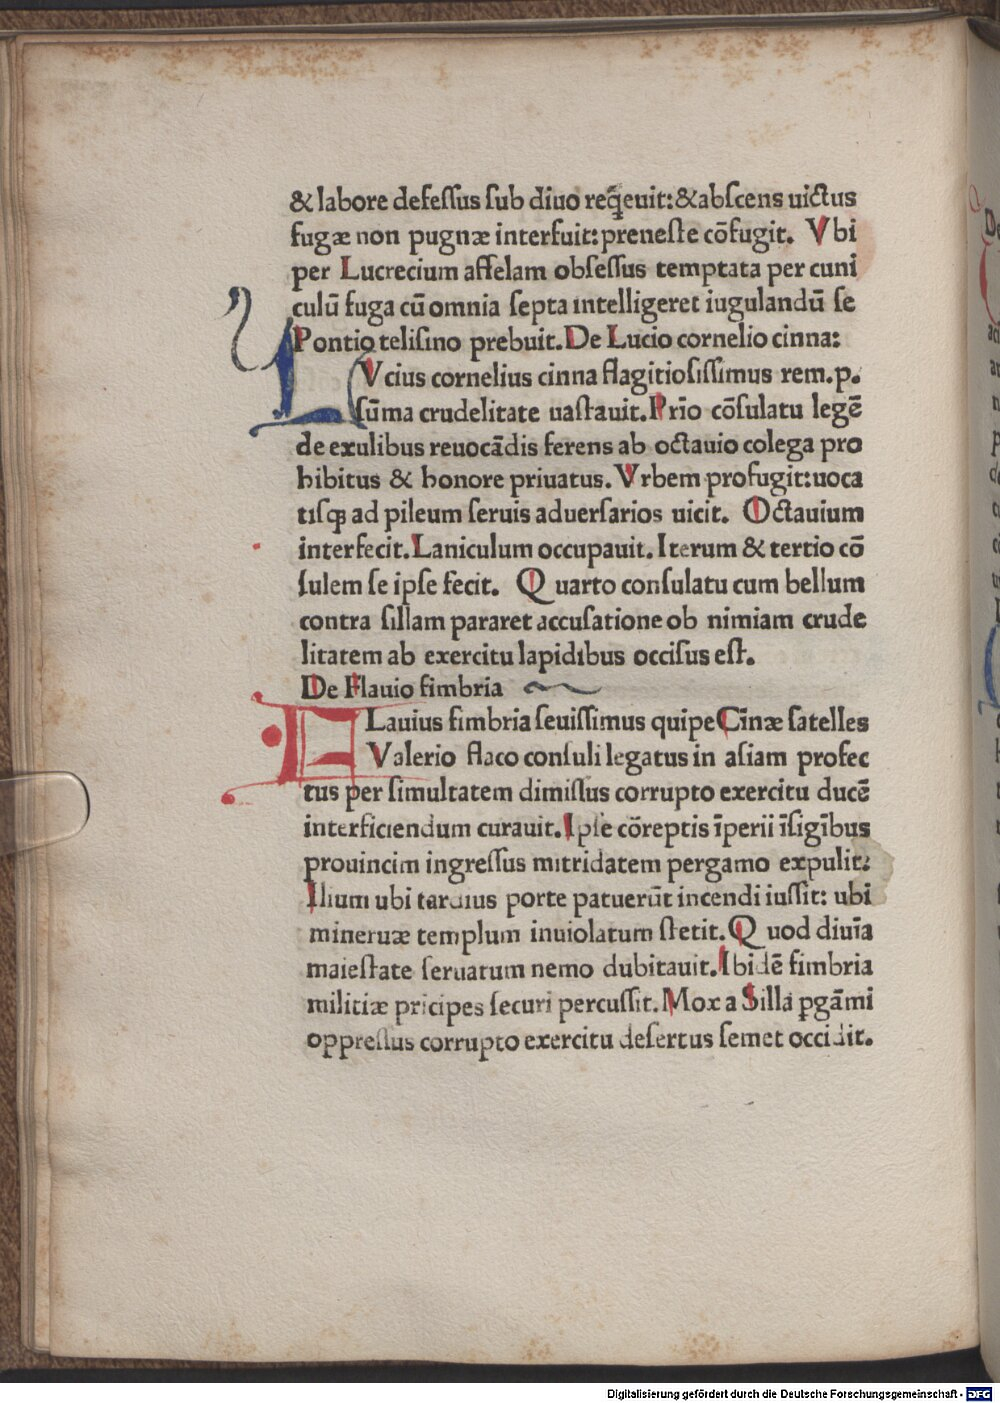 & labore defessus sub diuo req̄euit: & abscens uictus
fugæ non pugnæ interfuit: preneste cōfugit. Vbi
per Lucrecium affelam obsessus temptata per cuni
culū fuga cū omnia septa intelligeret iugulandū se
Pontio telisino prebuit. De Lucio cornelio cinna:
LVcius cornelius cinna flagitiosissimus rem.p.
sūma crudelitate uastauit. Prīo cōsulatu legē
de exulibus reuocādis ferens ab octauio colega pro
hibitus & honore priuatus. Vrbem profugit: uoca
tisqꝫ ad pileum seruis aduersarios uicit. Octauium
interfecit. Laniculum occupauit. Iterum & tertio cō
sulem se ipse fecit. Quarto consulatu cum bellum
contra sillam pararet accusatione ob nimiam crude
litatem ab exercitu lapidibus occisus est.
De Flauio fimbria
FLauius fimbria seuissimus quipe Cīnæ satelles
Valerio flaco consuli legatus in asiam profec
tus per simultatem dimissus corrupto exercitu ducē
interficiendum curauit. Ipse cōreptis īperii īsigībus
prouincim ingressus mitridatem pergamo expulit:
Ilium ubi tardius porte patuerūt incendi iussit: ubi
mineruæ templum inuiolatum stetit. Quod diuīa
maiestate seruatum nemo dubitauit. Ibidē fimbria
militiæ pricipes securi percussit. Mox a Silla ꝑgāmi
oppressus corrupto exercitu desertus semet occidit.
Digitalisierung gefördert durch die Deutsche Forschungsgemeinschaft - DFG